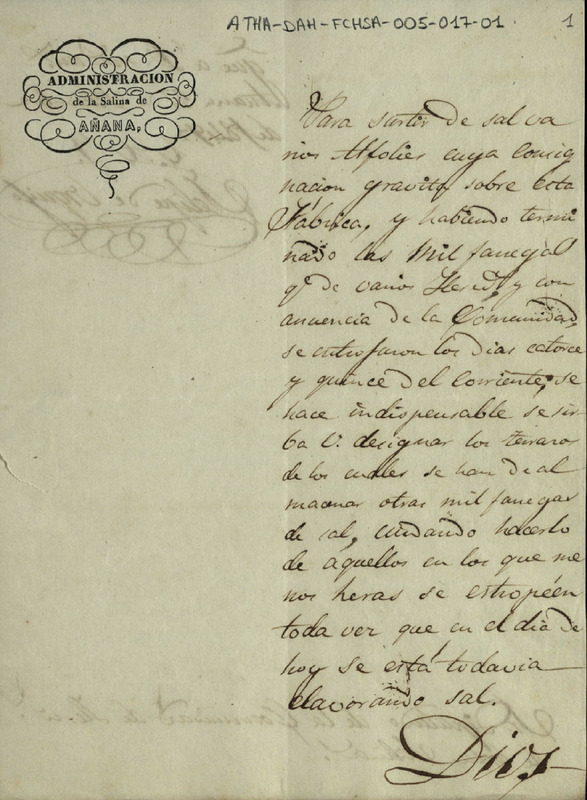 ATHA-DAH-FCHSA-005-017-01
1
ADMINISTRACION
de la Salina de
AÑANA,
Para surtir de sal va
rios Alfolies cuya consig
nacion gravita sobre esta
Fabrica, y habiendo termi
nado las mil fanegas
qe. de varios y con
anuencia de la Comunidad,
se entrojaron los dias catorce
y quince del Corriente, se
hace indispensable se sir
ba V. designar los terraros
de los cuales se han de al
macenar otras mil fanegas
de sal, cuidando hacerlo
de aquellos en los que me
nos heras se estropéen
toda vez que en el dia de
hoy se está todavia
elavorando sal.
Dios